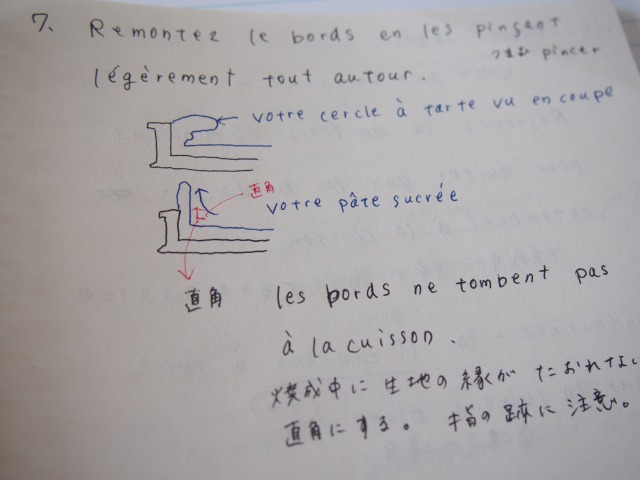 7. Remontez le bords en les pinçant
つまむ pincer
légèrement tout autour.
votre cercle à tarte vu en coupe
直角
votre pâte sucrée
直角
les bords ne tombent pas
à la cuisson.
焼成中に生地の縁がたおれない
直角にする。 指の跡に注意。